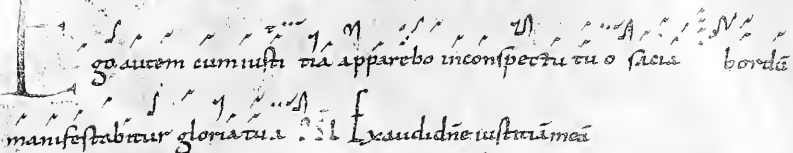 Ego autem cum iusti tia apparebo inconspectu tu o sacia bordū
manifestabitur gloria tua PSL Exaudi dñe iustitiā meā